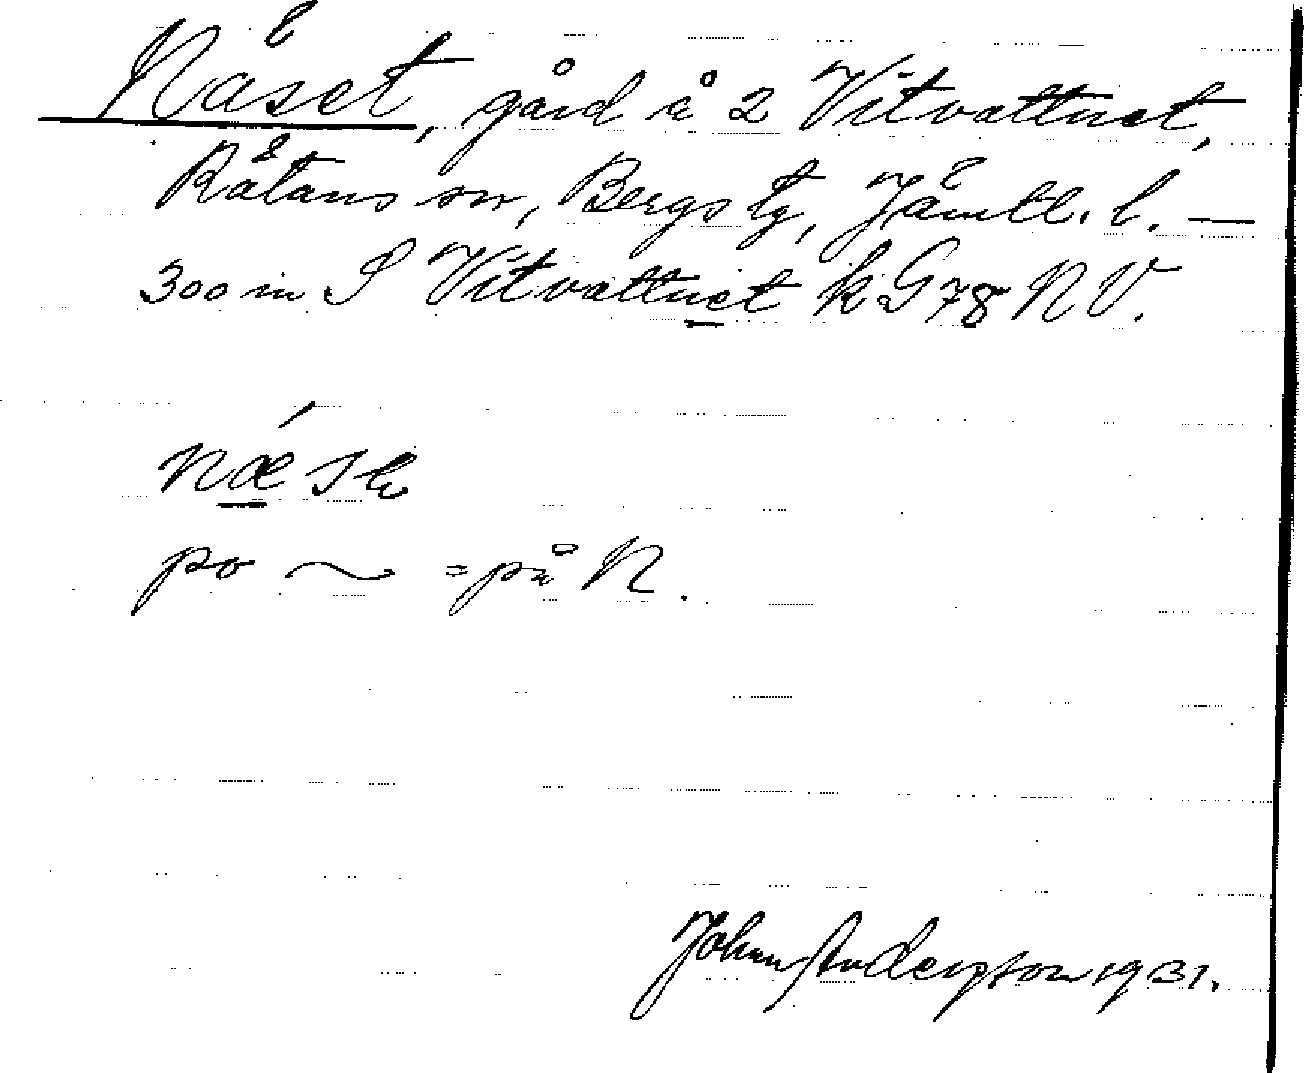 Näset, gård å 2 Vitvattnet,
Rätans sn, Bergs tg, Jämtl. l. —
300 m S Vitvattnet k G 78 NV.
næ´se
po ~ = på N.
John Andersson 1931.